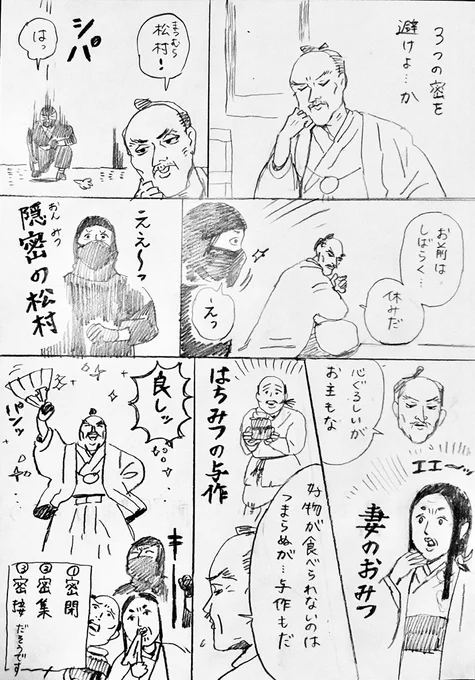 3つの密を
避けよ…か
まつむら
松村!
シパ
はっ
お前は
しばらく…
休みだ
えっ
ええ〜っ
おんみつ
隠密の松村
心ぐるしいが
お主もな
エエ〜ッ
妻のおみつ
はちみつの与作
好物が食べられないのは
つまらぬが…与作もだ
良しッ
パンッ
キーッ
①密閉
②密集
③密接
だそうです